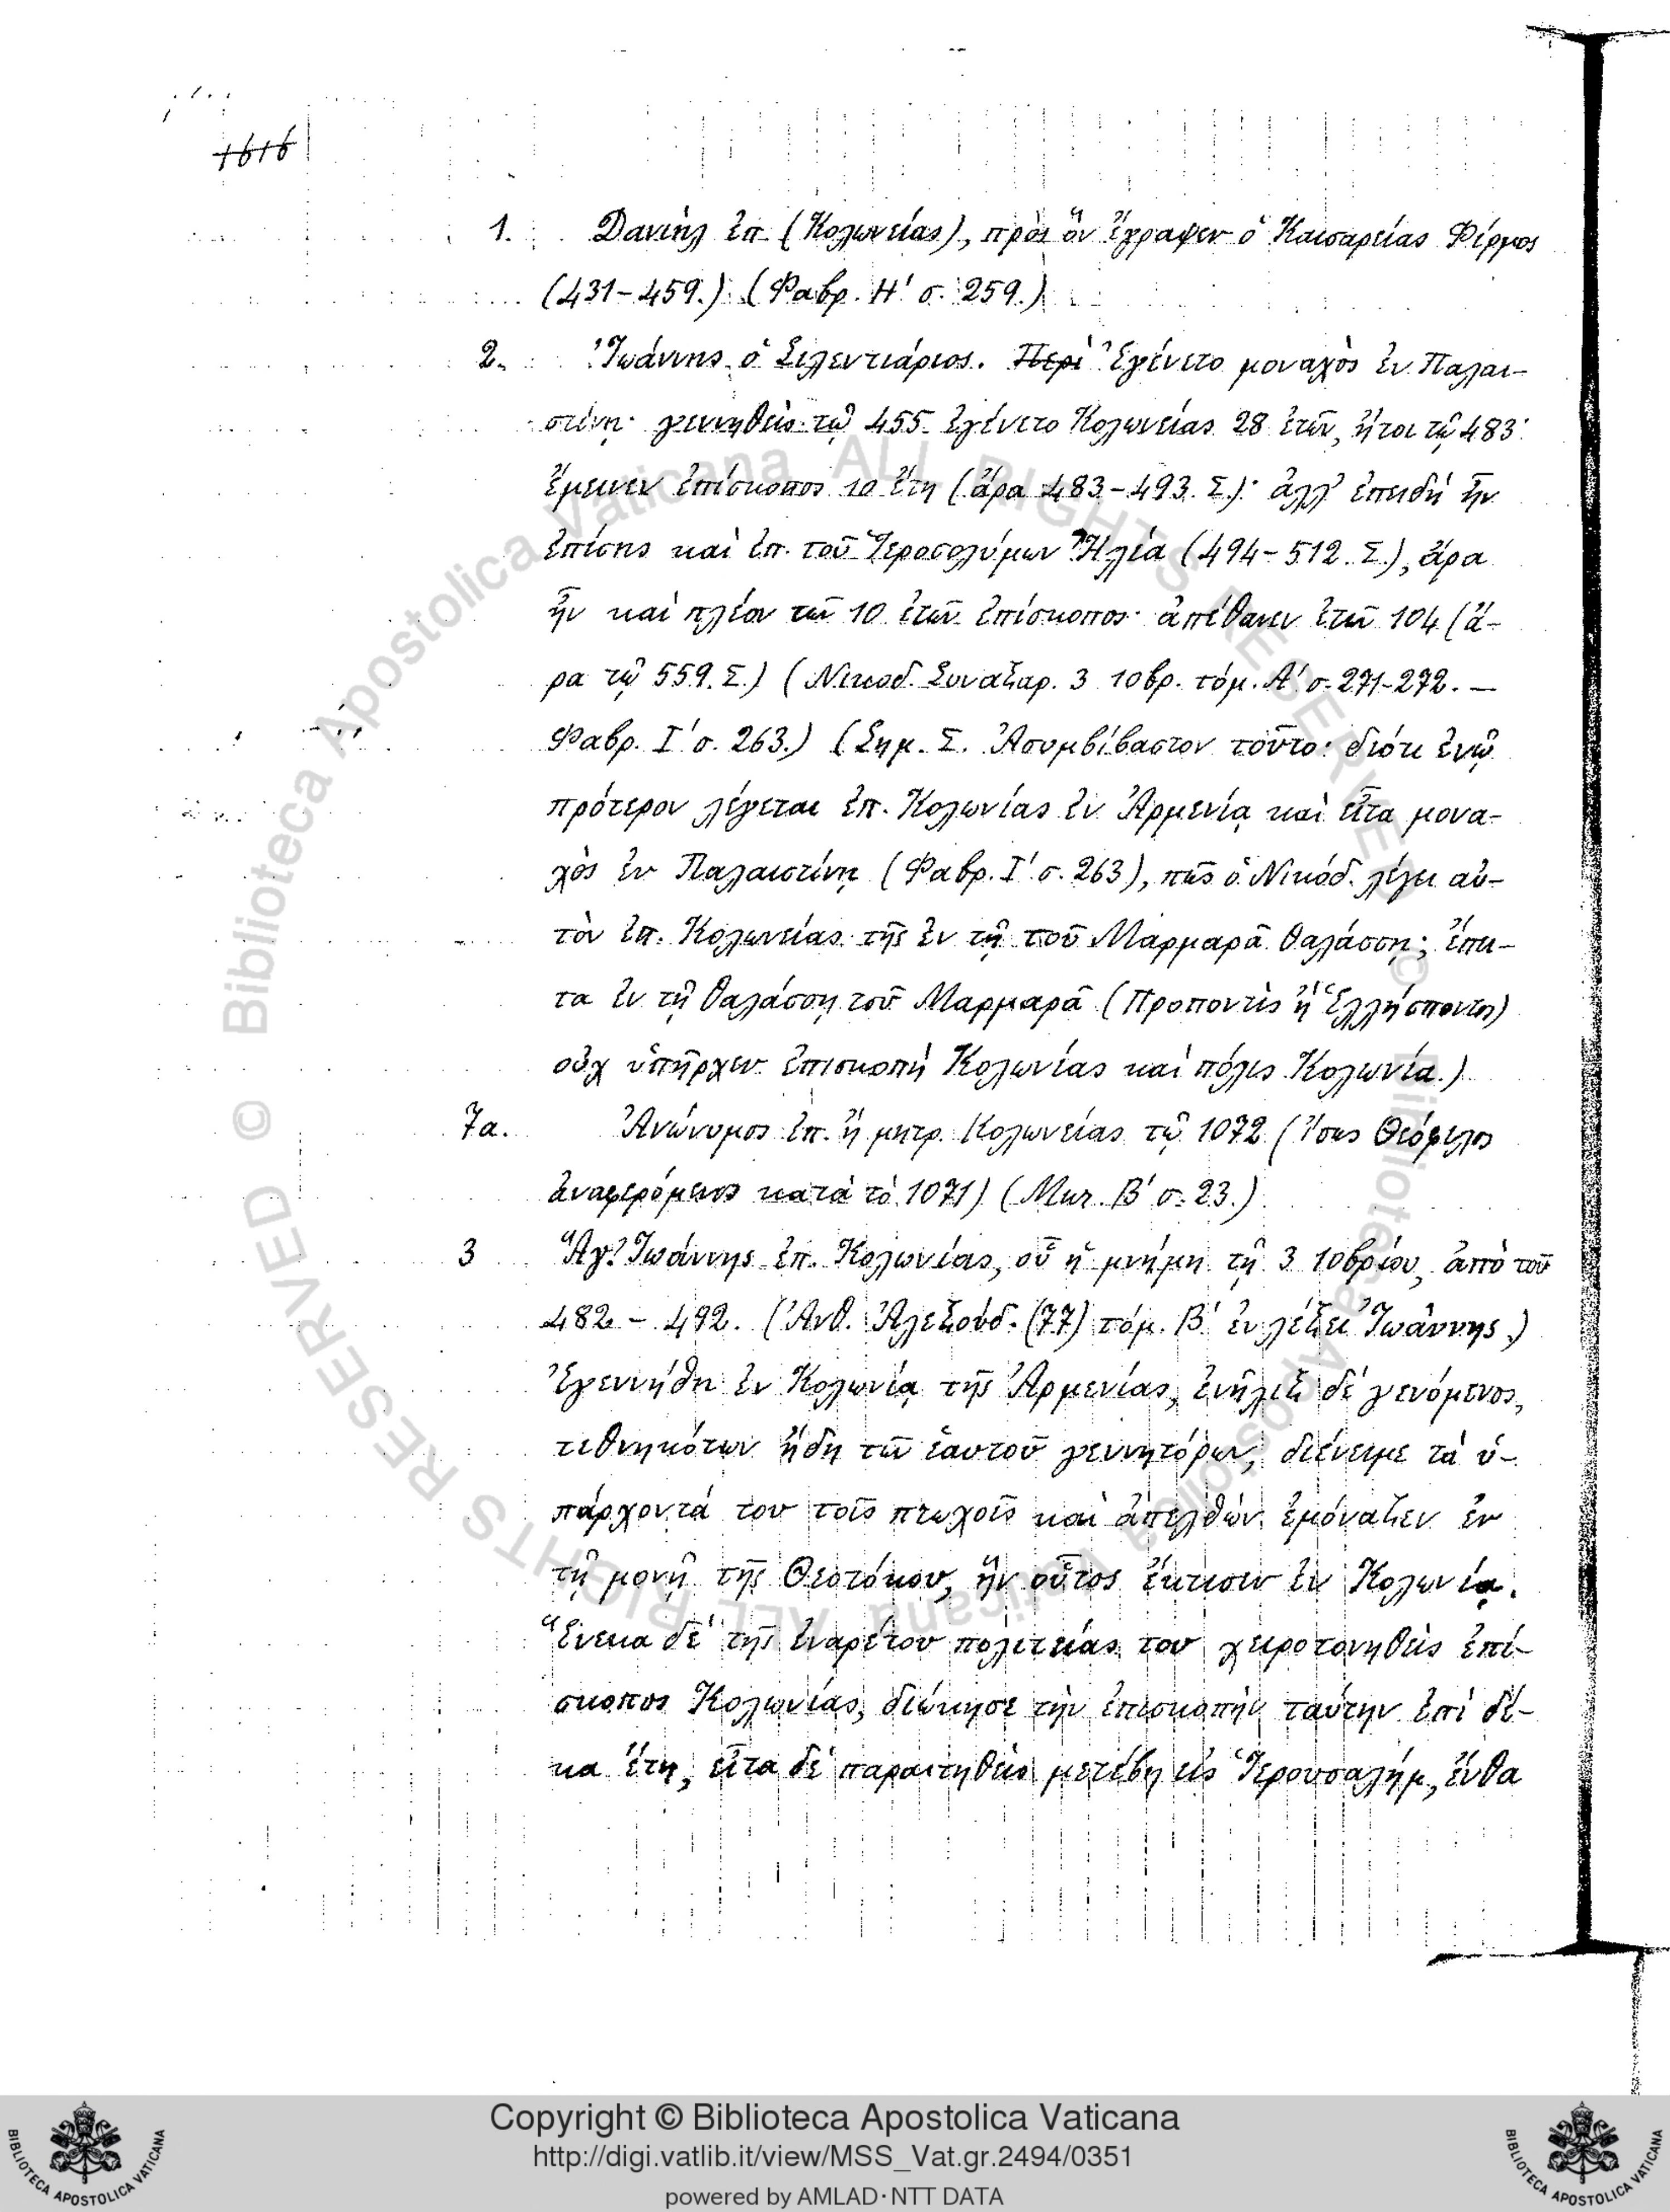 1616
1. Δανιὴλ ἐπ. (Κολωνείας), πρὸς ὃν ἔγραψεν ὁ Καισαρείας Φίρμος
(431-459.) (Φαβρ. Η' σ. 259.)
2. Ἰωάννης ὁ Σιλεντιάριος. Περὶ Ἐγένετο μοναχὸς ἐν Παλαι-
στίνῃ· γεννηθεὶς τῷ 455 ἐγένετο Κολωνείας 28 ἐτῶν, ἤτοι τῷ 483·
ἔμεινεν ἐπίσκοπος 10 ἔτη (ἄρα 483-493. Σ.)· ἀλλ' ἐπειδὴ ἦν
ἐπίσης καὶ ἐπ. τοῦ Ἱεροσολύμων Ἠλία (494-512. Σ.), ἄρα
ἦν καὶ πλέον τῶν 10 ἐτῶν ἐπίσκοπος· ἀπέθανεν ἐτῶν 104 (ἄ-
ρα τῷ 559. Σ.) (Νικοδ. Συναξαρ. 3 10βρ. τόμ. Α' σ. 271-272. —
Φαβρ. Ι' σ. 263.) (Σημ. Σ. Ἀσυμβίβαστον τοῦτο· διότι ἐνῷ
πρότερον λέγεται ἐπ. Κολωνίας ἐν Ἀρμενίᾳ καὶ εἶτα μονα-
χὸς ἐν Παλαιστίνῃ (Φαβρ. Ι' σ. 263), πῶς ὁ Νικόδ. λέγει αὐ-
τὸν ἐπ. Κολωνείας τῆς ἐν τῇ τοῦ Μαρμαρᾶ θαλάσσῃ; ἔπει-
τα ἐν τῇ θαλάσσῃ τοῦ Μαρμαρᾶ (Προποντὶς ἢ Ἑλλήσποντος)
οὐχ ὑπῆρχεν ἐπισκοπὴ Κολωνίας καὶ πόλις Κολωνία.)
7α. Ἀνώνυμος ἐπ. ἢ μητρ. Κολωνείας τῷ 1072 (ἴσως Θεόφιλος
ἀναφερόμενος κατὰ τὸ 1071) (Μικ. Β' σ. 23.)
3 Ἅγ. Ἰωάννης ἐπ. Κολωνίας, οὗ ἡ μνήμη τῇ 3 10βρίου, ἀπὸ τοῦ
482 - 492. (Ἀνθ. Ἀλεξούδ. (77) τόμ. Β' ἐν λέξει Ἰωάννης.)
Ἐγεννήθη ἐν Κολωνίᾳ τῆς Ἀρμενίας, ἐνῆλιξ δὲ γενόμενος,
τεθνηκότων ἤδη τῶν ἑαυτοῦ γεννητόρων, διένειμε τὰ ὑ-
πάρχοντά του τοῖς πτωχοῖς καὶ ἀπελθὼν ἐμόναζεν ἐν
τῇ μονῇ τῆς Θεοτόκου, ἣν οὗτος ἔκτισεν ἐν Κολωνίᾳ.
Ἕνεκα δὲ τῆς ἐναρέτου πολιτείας του χειροτονηθεὶς ἐπί-
σκοπος Κολωνίας, διῴκησε τὴν ἐπισκοπὴν ταύτην ἐπὶ δέ-
κα ἔτη, εἶτα δὲ παραιτηθεὶς μετέβη εἰς Ἱερουσαλήμ, ἔνθα
© Biblioteca Apostolica Vaticana ALL RIGHTS RESERVED
© Biblioteca Apostolica Vaticana ALL RIGHTS RESERVED
Copyright © Biblioteca Apostolica Vaticana
http://digi.vatlib.it/view/MSS_Vat.gr.2494/0351
powered by AMLAD·NTT DATA
BIBLIOTECA APOSTOLICA VATICANA
BIBLIOTECA APOSTOLICA VATICANA